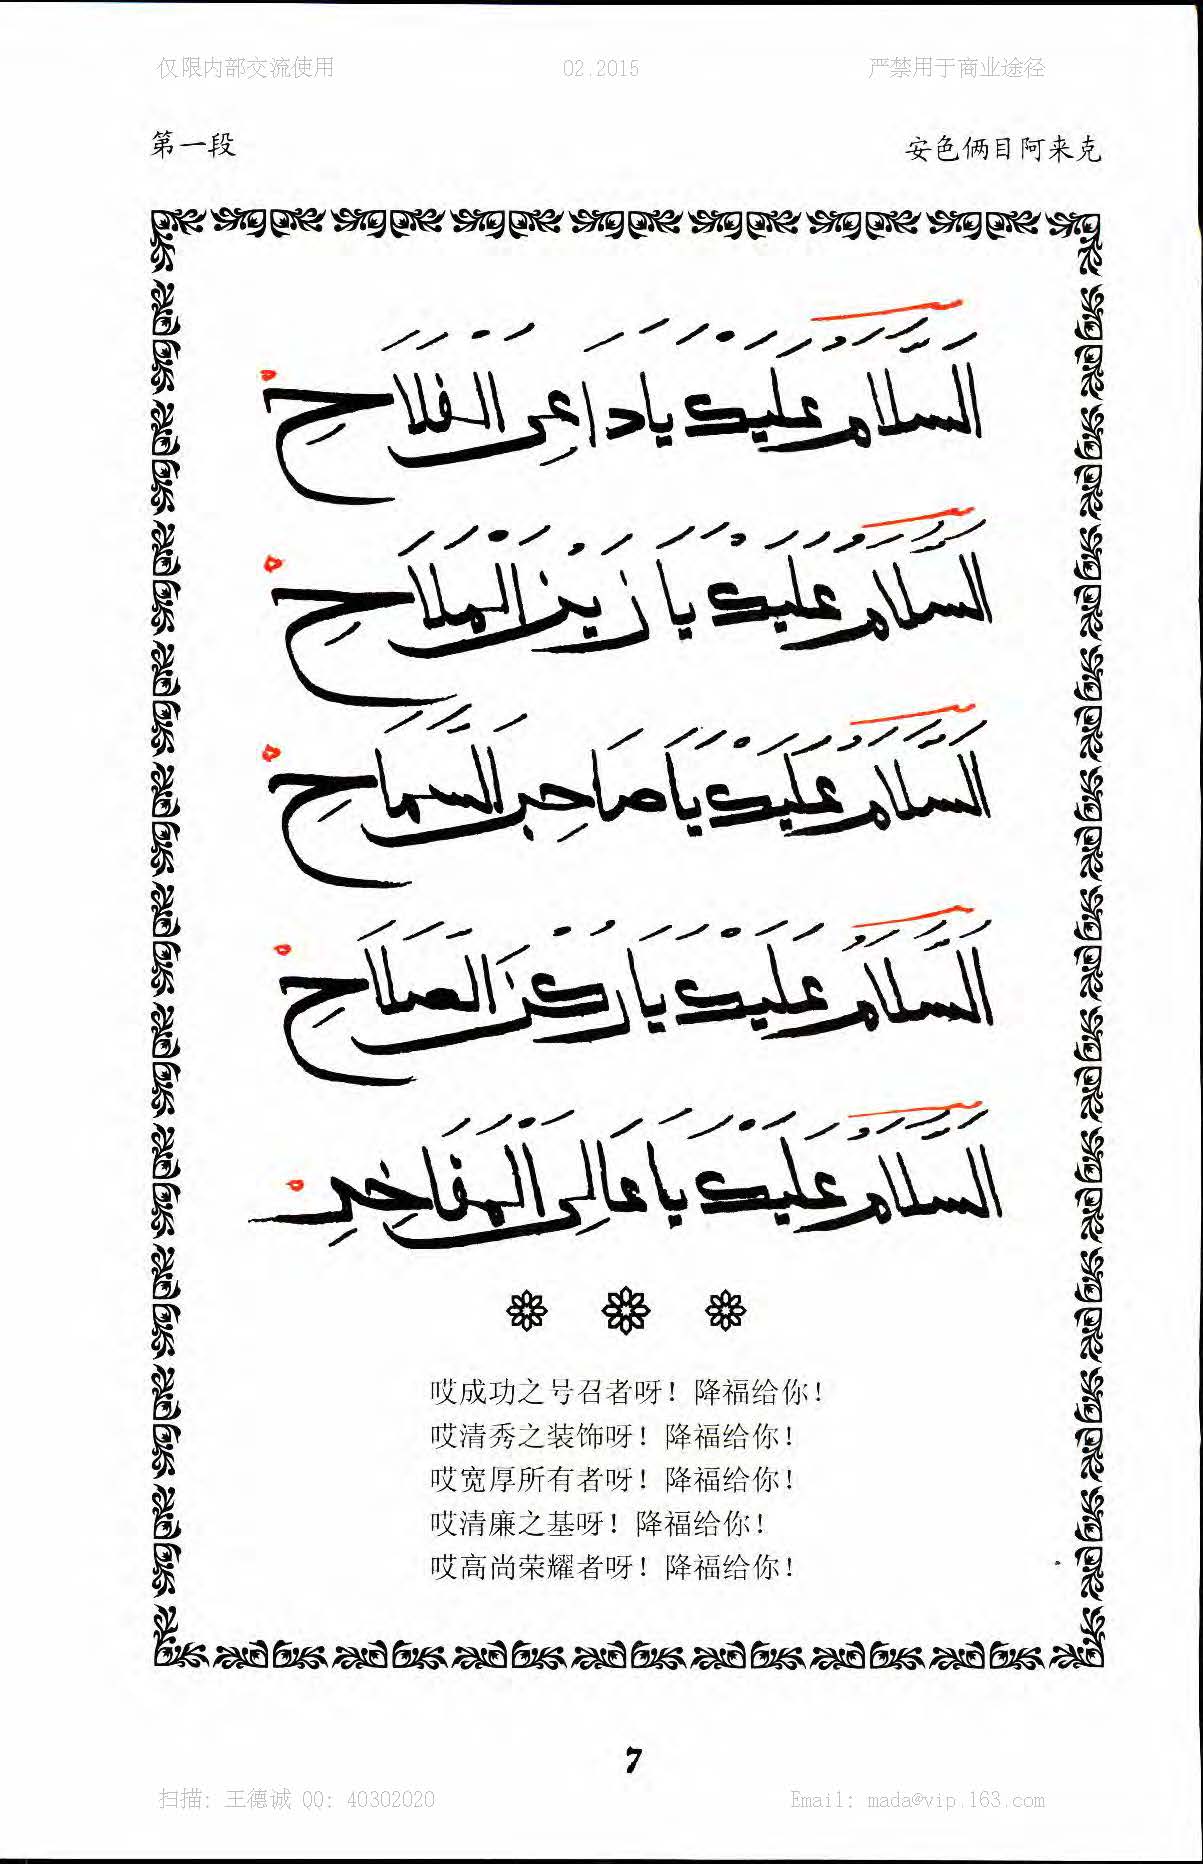 仅限内部交流使用 02.2015 严禁用于商业途径
第一段 安色俩目阿来克
السَّلَامُ عَلَيْكَ يَا دَاعِيَ الْفَلَاحِ
السَّلَامُ عَلَيْكَ يَا زَيْنَ الْمِلَاحِ
السَّلَامُ عَلَيْكَ يَا صَاحِبَ السَّمَاحِ
السَّلَامُ عَلَيْكَ يَا رُكْنَ الصَّلَاحِ
السَّلَامُ عَلَيْكَ يَا عَالِيَ الْمَفَاخِرِ
哎成功之号召者呀！降福给你！
哎清秀之装饰呀！降福给你！
哎宽厚所有者呀！降福给你！
哎清廉之基呀！降福给你！
哎高尚荣耀者呀！降福给你！
7
扫描：王德诚 QQ：40302020 Email：mada@vip.163.com